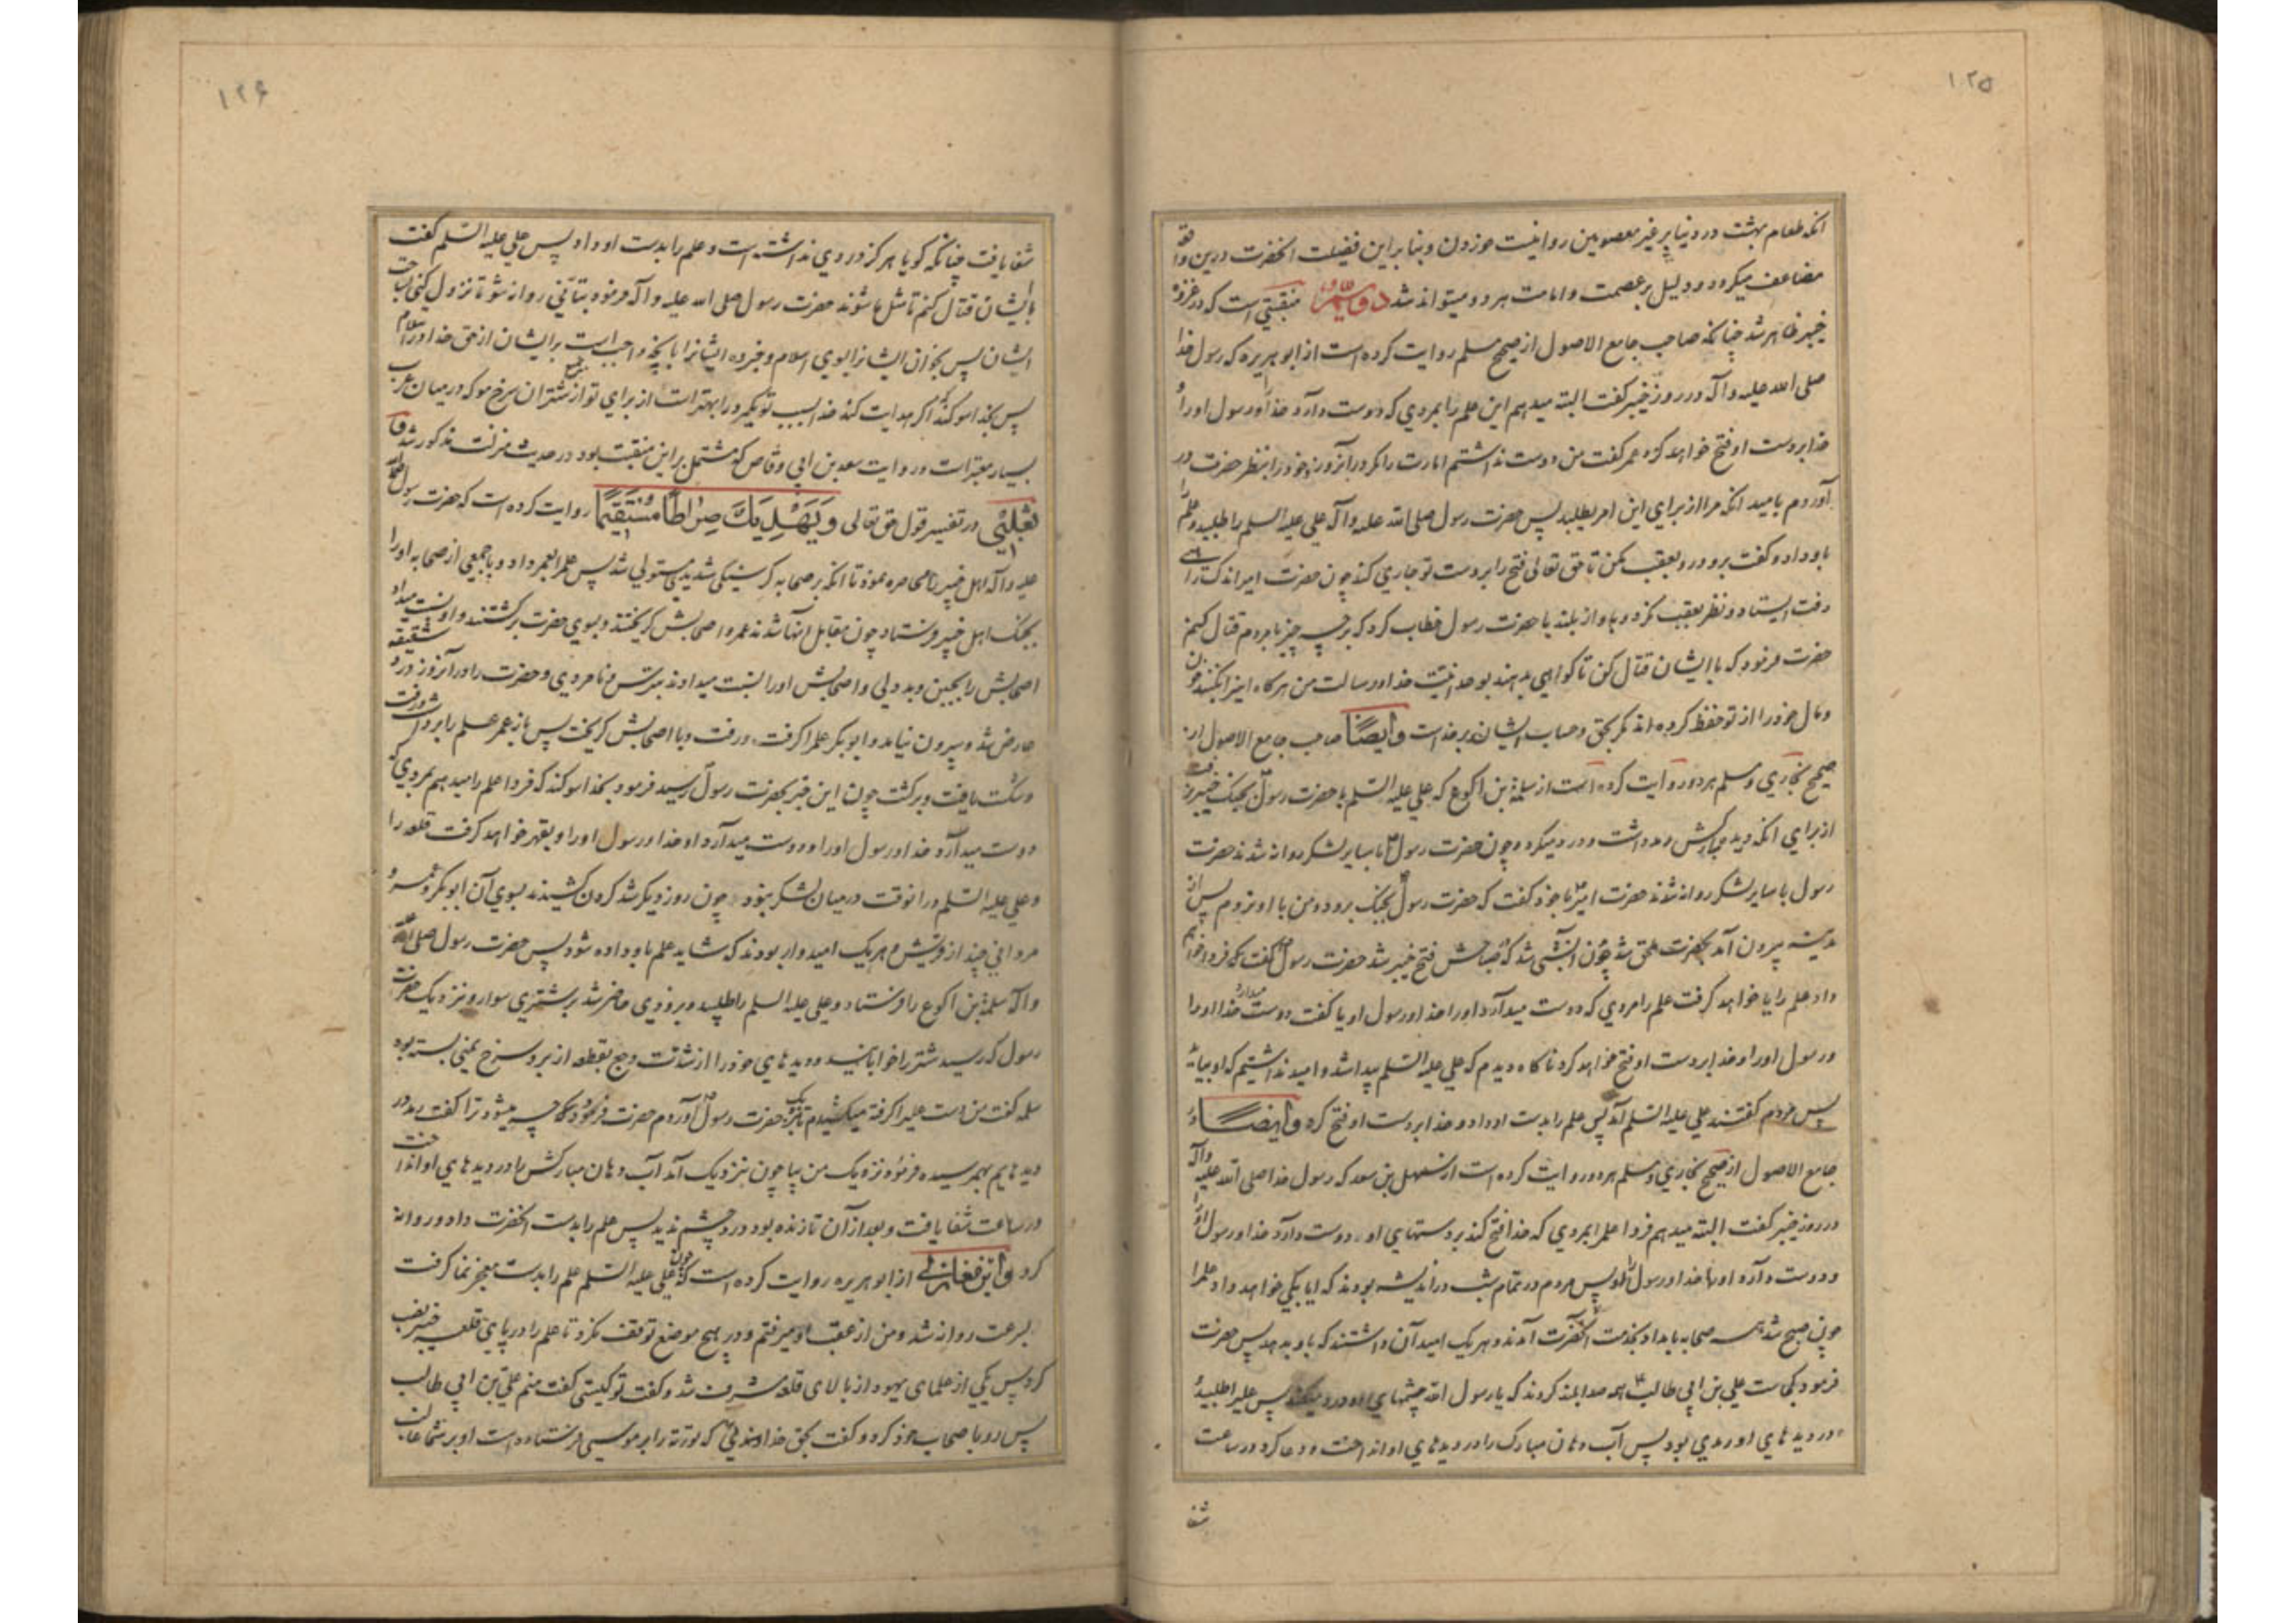 ۱۲۵
انکه طعام بهشت در دنیا بر غیر معصومین روا نیست خوردن و بنا بر این فضیلت انحضرت درین واقعه
مضاعف میکردد و دلیل بر عصمت و امامت هر دو میتواند شد منقبتی است که در غزوه
خیبر ظاهر شد چنانکه صاحب جامع الاصول از صحیح مسلم روایت کرده است از ابو هریره که رسول خدا
صلی الله علیه و آله در روز خیبر کفت البته میدهم این علم را بمردی که دوست دارد خدا و رسول او را
خدا بر دست او فتح خواهد کرد عمر کفت من دوست نداشتم امارت را مکر در آنروز و خود را بنظر حضرت در
آوردم بامید انکه مرا از برای این امر بطلبد پس حضرت رسول صلی الله علیه و آله علی علیه السلم را طلبید و علم را
باو داد و کفت برو و رو بعقب مکن تا حق تعالی فتح را بر دست تو جاری کند چون حضرت امیر اندک راهی
رفت ایستاد و نظر بعقب نکرد و باواز بلند با حضرت رسول خطاب کرد که بر چه چیز با مردم قتال کنم
حضرت فرمود که با ایشان قتال کن تا کواهی بدهند بوحدانیت خدا و رسالت من هرکاه اینرا بکنند خون
و مال خود را از تو حفظ کرده اند مکر بحق و حساب ایشان بر خداست وایضا صاحب جامع الاصول از
صحیح بخاری و مسلم هر دو روایت کرده است از سلمة بن اکوع که علی علیه السلم با حضرت رسول بجنک خیبر نرفت
از برای انکه دیده مبارکش رمد داشت و درد میکرد و چون حضرت رسول با سایر لشکر روانه شدند حضرت
رسول با سایر لشکر روانه شدند حضرت امیر با خود کفت که حضرت رسول بجنک برود و من با او نروم پس از
مدینه بیرون آمد بحضرت ملحق شد چون آنشبی شد که صباحش فتح خیبر شد حضرت رسول کفت که فردا خواهم
داد علم را یا خواهد کرفت علم را مردی که دوست میدارد او را خدا و رسول او یا کفت دوست میدارد خدا را
و رسول او را و خدا بر دست او فتح خواهد کرد ناکاه دیدم که علی علیه السلم پیدا شد و امید نداشتیم که او بیاید
پس مردم کفتند علی علیه السلم آمد پس علم را بدست او داد و خدا بر دست او فتح کرد وایضا در
جامع الاصول از صحیح بخاری و مسلم هر دو روایت کرده است از سهل بن سعد که رسول خدا صلی الله علیه و آله
در روز خیبر کفت البته میدهم فردا علم را بمردی که خدا فتح کند بر دستهای او دوست دارد خدا و رسول او را
و دوست دارد او را خدا و رسول او پس مردم در تمام شب در اندیشه بودند که ایا بکی خواهد داد علم را
چون صبح شد همه صحابه بامداد بخدمت آنحضرت آمدند و هر یک امید آن داشتند که باو بدهد پس حضرت
فرمود کجاست علی بن ابی طالب همه صدا بلند کردند که یا رسول الله چشمهای او درد میکند پس علی را طلبید و
در دیده های او رمدی بود پس آب دهان مبارک را در دیده های او انداخت و دعا کرد در ساعت
شفا
۱۲۶
شفا یافت چنانکه کویا هرکز دردی نداشته است و علم را بدست او داد پس علی علیه السلم کفت
با ایشان قتال کنم تا مثل ما شوند حضرت رسول صلی الله علیه و آله فرمود بتأنی روانه شو تا نزول کنی بساحت
ایشان پس بخوان ایشانرا بسوی اسلام و خبر ده ایشانرا بانچه واجب است بر ایشان از حق خدا در اسلام
پس بخدا سوکند اکر هدایت کند خدا بسبب تو یکمرد را بهتر است از برای تو از شتران سرخ مو که در میان عرب
بسیار معتبر است و روایت سعد بن ابی وقاص که مشتمل بر این منقبت بود در حدیث منزلت مذکور شد و
ثعلبی در تفسیر قول حق تعالی وَیَهْدِیَكَ صِرَاطًا مُسْتَقِیمًا روایت کرده است که حضرت رسول صلی الله
علیه و آله اهل خیبر را محاصره نمود تا انکه بر صحابه کرسنکی شدیدی مستولی شد پس علم را بعمر داد و با جمعی از صحابه او را
بجنک اهل خیبر فرستاد چون مقابل آنها شدند عمر و اصحابش کریختند و بسوی حضرت برکشتند و او نسبت میداد
اصحابش را بجبن و بددلی و اصحابش او را نسبت میدادند بترس و نامردی و حضرت را در آنروز درد شقیقه
عارض شد و بیرون نیامد و ابو بکر علم را کرفت و رفت و با اصحابش کریخت پس باز عمر علم را برداشت و رفت
و شکست یافت و برکشت چون این خبر بحضرت رسول رسید فرمود بخدا سوکند که فردا علم را میدهم بمردی که
دوست میدارد خدا و رسول او را و دوست میدارد او را خدا و رسول او را و بقهر خواهد کرفت قلعه را
و علی علیه السلم در انوقت در میان لشکر نبود چون روز دیکر شد کردن کشیدند بسوی آن ابو بکر و عمر و
مردانی چند از قریش و هر یک امیدوار بودند که شاید علم باو داده شود پس حضرت رسول صلی الله علیه
و آله سلمة بن اکوع را فرستاد و علی علیه السلم را طلبید و بزودی حاضر شد بر شتری سوار و نزدیک حضرت
رسول که رسید شتر را خوابانید و دیده های خود را از شدت وجع بقطعه از برد سرخ یمنی بسته بود
سلمه کفت من دست علی را کرفته میکشیدم تا بنزدیک حضرت رسول آوردم حضرت فرمود که چه میشود ترا کفت رمد در
دیدهایم بهم رسیده فرمود نزدیک من بیا چون نزدیک آمد آب دهان مبارکش را در دیده های او انداخت
در ساعت شفا یافت و بعد از آن تا زنده بود درد چشم ندید پس علم را بدست آنحضرت داد و روانه
کرد وابن مغازلی از ابو هریره روایت کرده است که چون علی علیه السلم علم را بدست معجز نما کرفت
بسرعت روانه شد و من از عقب او میرفتم و در هیچ موضع توقف نکرد تا علم را در پای قلعه خیبر نصب
کرد پس یکی از علمای یهود از بالای قلعه مشرف شد و کفت تو کیستی کفت منم علی بن ابی طالب
پس رو باصحاب خود کرد و کفت بحق خداوندی که توریة را بر موسی فرستاده است او بر شما غالب